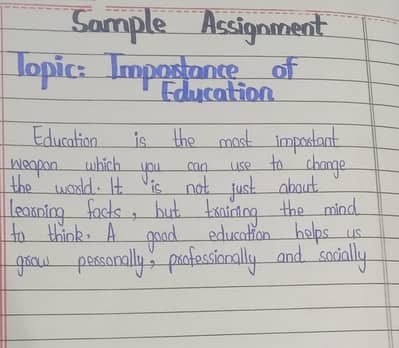 Sample Assignment
Topic: Importance of
Education
Education is the most important
weapon which you can use to change
the world. It is not just about
learning facts, but training the mind
to think. A good education helps us
grow personally, professionally and socially